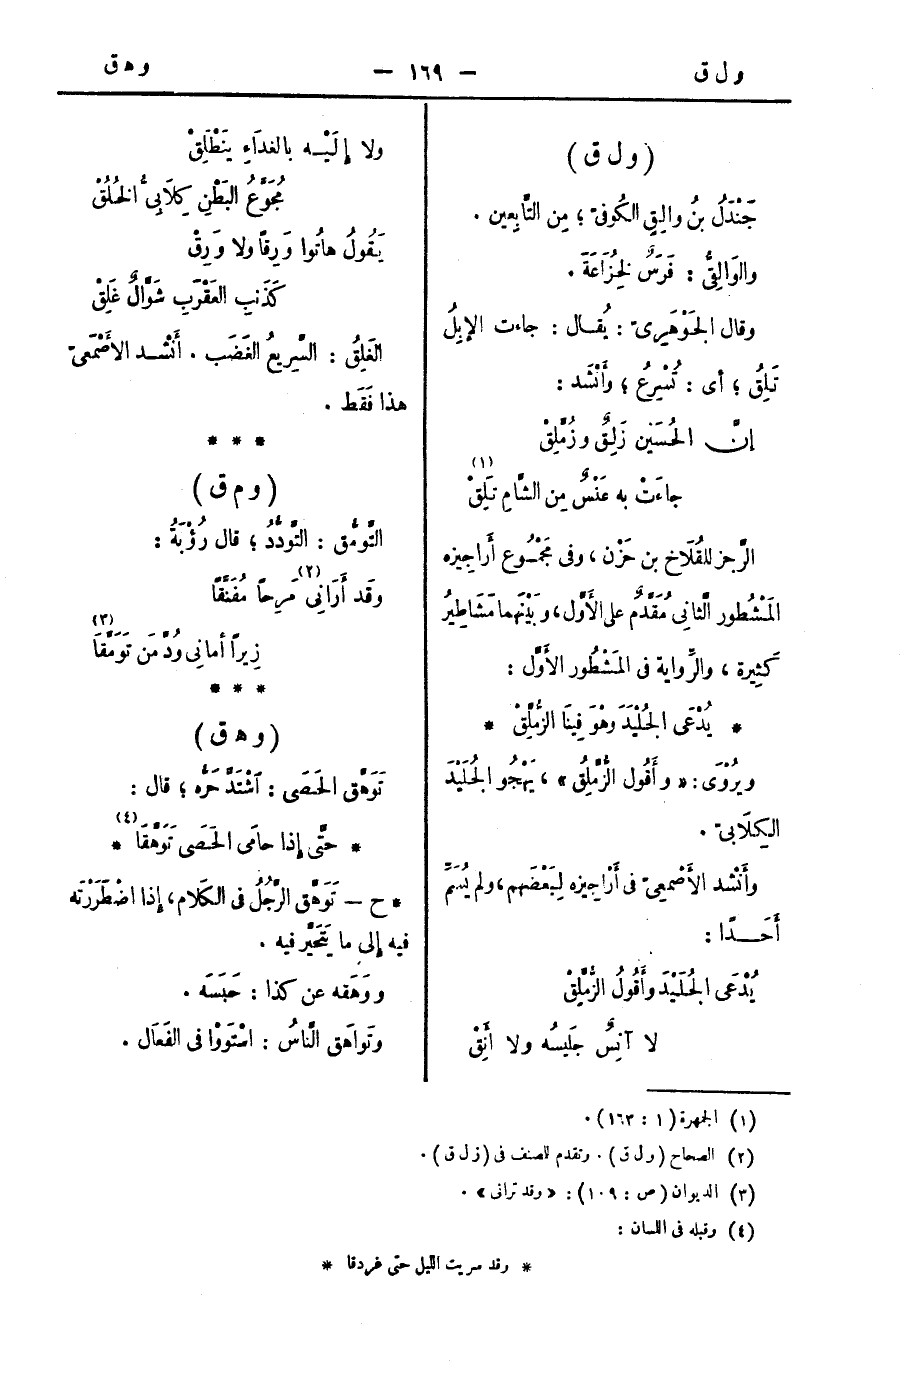 ول ق
— ١٦٩ —
وهق
(ول ق)
جَنْدَلُ بنُ والِقٍ الكُوفىّ ؛ مِن التَّابِعين .
والوَالِقِىُّ : فَرَسٌ لِخُزَاعَةَ .
وقال الجَوْهَرِىّ : يُقـال : جاءت الإبِلُ
تَلِقُ ؛ أى : تُسْرِعُ ؛ وأَنْشَد :
إنَّ الحُسَيْن زَلِقٌ و زُمَّلِقْ
جاءَتْ به عَنْسٌ مِن الشَّامِ تَلِقْ (١)
الرَّجز للقُلَاخ بن حَزْن ، وفى مَجْمُـوع أَراجيزه
المَشْطور الثَّانى مُقَدَّمٌ على الأَوَّل، وبَيْنَهما مَشَاطِيرُ
كَثِيرة ، والرِّواية فى المَشْطُور الأَوَّل :
* يُدْعَى الجُلَيْدَ وهْوَ فِينَا الزُّمَّلِقْ *
ويُرْوَى: « وأَقُول الزُّمَّلِقُ » ، يَهْجُو الجُلَيْدَ
الكِلَابىّ .
وأَنْشد الأَصْمعىّ فى أَرْاجيزه لِبَعْضهم، ولم يُسَمِّ
أَحَـــدًا :
يُدْعَى الجُلَيْدَ وأَقُولُ الزُّمَّلِقْ
لا آنِسٌ جَلِيسُه ولا أَنِقْ
ولا إِلَيْــه بالغدَاءِ يَنْطَلِقْ
مُجَوَّعُ البَطْنِ كِلَابِىُّ الخُلُقْ
يَقُولُ هاتُوا وَرِقًا ولا وَرِقْ
كَذَنبِ العَقْرَبِ شَوَّالٌ غَلِقْ
الغَلِقُ : السَّرِيعُ الغَضَب . أَنْشـد الأَصْمَعىّ
هذا فَقَط .
* * *
(وم ق)
التَّوَمُّق : التَّودُّدُ ؛ قال رُؤْبَةُ :
وقَد أَرَانِى مَرِحًا مُفَنَّقًا (٢)
زِيراً أمانِى وُدَّ مَن تَوَمَّقَا (٣)
* * *
(وه ق)
تَوَهَّق الحَصَى : اشْتَدَّ حَرُّه ؛ قال :
* حَتَّى إذا حامَى الحَصَى تَوَهَّقَا (٤) *
* ح — تَوَهَّق الرَّجُلُ فى الكَلَام، إذا اضْطَرَرْتَه
فيه إلى ما يَتَحَيَّر فيه .
ووَهَقه عن كذا : حَبَسَه .
وتَواهَق النَّاسُ : اسْتَوَوْا فى الفَعَال .
(١) الجمهرة (١ : ١٦٣) .
(٢) الصحاح (ول ق) . وتقدم للصنف فى (زل ق) .
(٣) الديوان (ص : ١٠٩) : « وقد ترانى » .
(٤) وقبله فى اللسان :
* وقد سريت الليل حتى غردقا *